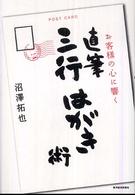 POST CARD
お客様の心に響く
直筆
三行
はがき
術
沼澤拓也